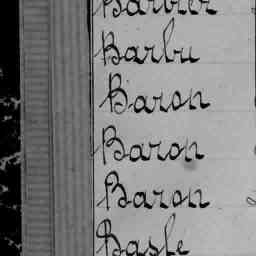 Barbier
Barbu
Baron
Baron
Baron
Basle